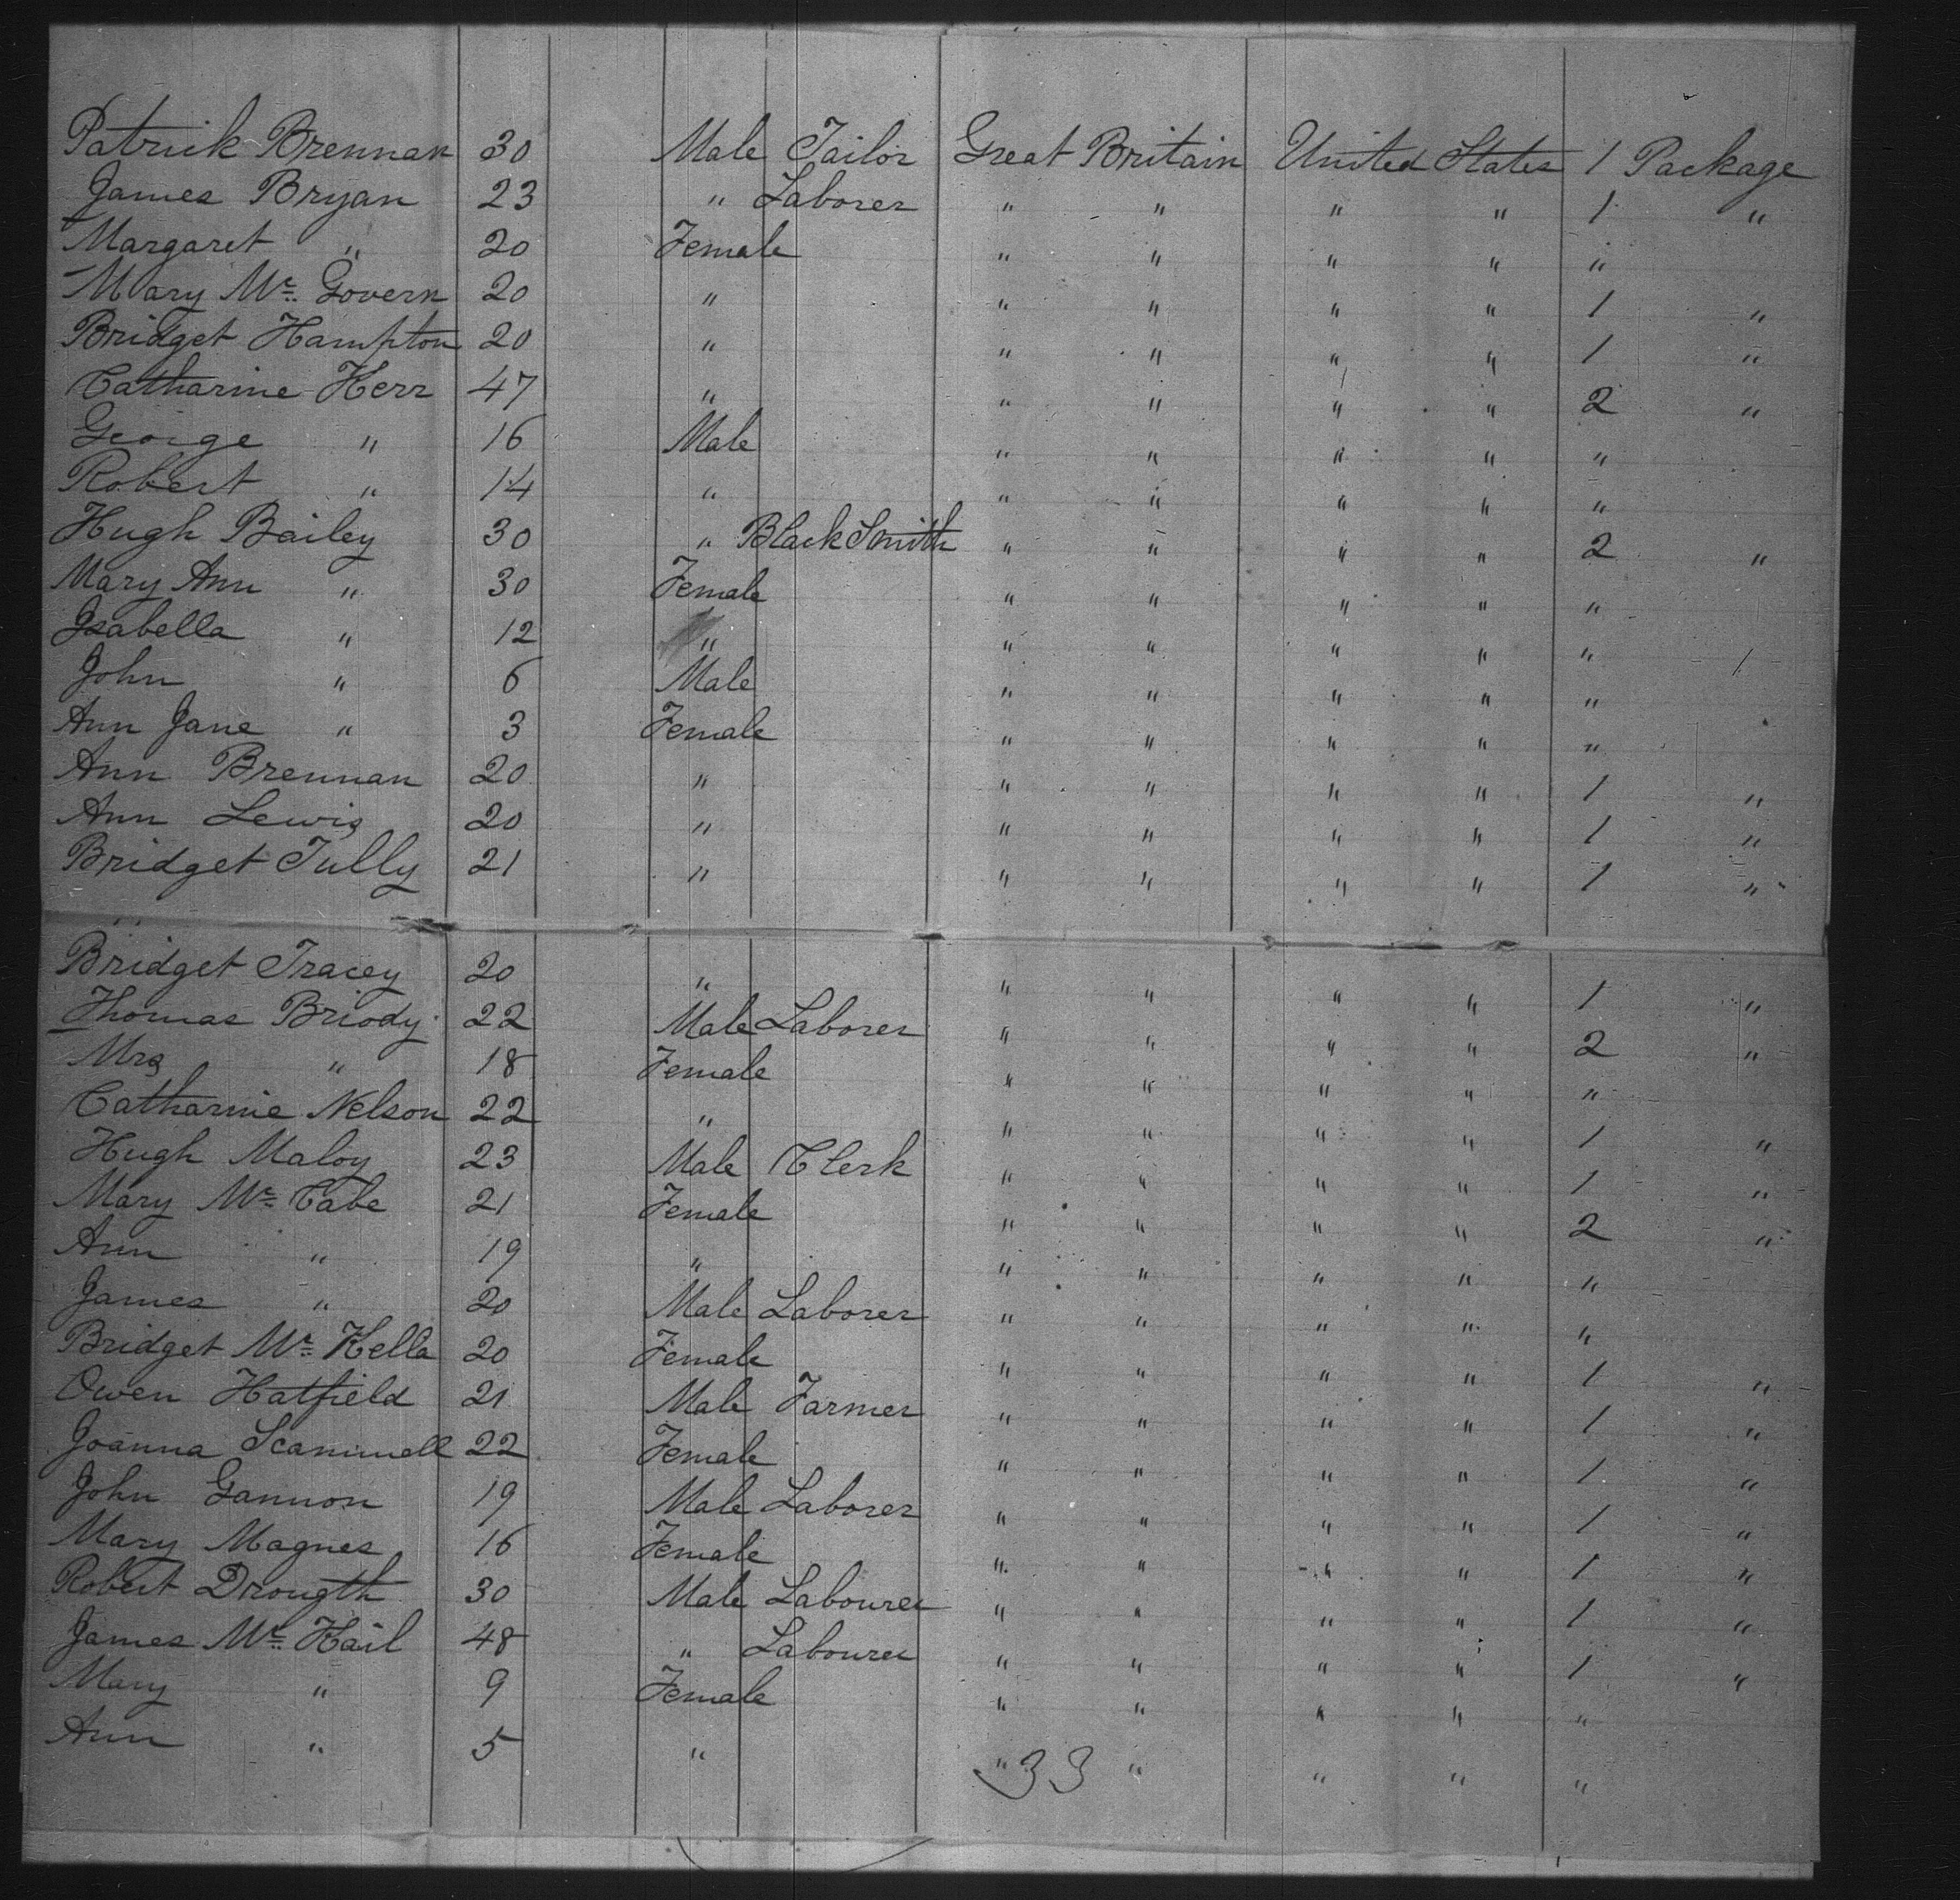 Patrick Brennan 30 Male Tailor Great Britain United States 1 Package
James Bryan 23 " Laborer " " " " 1 "
Margaret " 20 Female " " " " "
Mary Mc Govern 20 " " " " " 1 "
Bridget Hampton 20 " " " " " 1 "
Catharine Kerr 47 " " " " " 2 "
George " 16 Male " " " " "
Robert " 14 " " " " " "
Hugh Bailey 30 " Black Smith " " " " 2 "
Mary Ann " 30 Female " " " " "
Isabella " 12 " " " " " "
John " 6 Male " " " " "
Ann Jane " 3 Female " " " " "
Ann Brennan 20 " " " " " 1 "
Ann Lewis 20 " " " " " 1 "
Bridget Tully 21 " " " " " 1 "
Bridget Tracey 20 " " " " " 1 "
Thomas Briody 22 Male Laborer " " " " 2 "
Mrs " 18 Female " " " " "
Catharine Nelson 22 " " " " " 1 "
Hugh Maloy 23 Male Clerk " " " " 1 "
Mary Mc Cabe 21 Female " " " " 2 "
Ann " 19 " " " " " "
James " 20 Male Laborer " " " " "
Bridget Mc Kella 20 Female " " " " 1 "
Owen Hatfield 21 Male Farmer " " " " 1 "
Joanna Scammell 22 Female " " " " 1 "
John Gannon 19 Male Laborer " " " " 1 "
Mary Magnes 16 Female " " " " 1 "
Robert Drougth 30 Male Labourer " " " " 1 "
James Mc Hail 48 " Labourer " " " " 1 "
Mary " 9 Female " " " " "
Ann " 5 " " " " " "
33